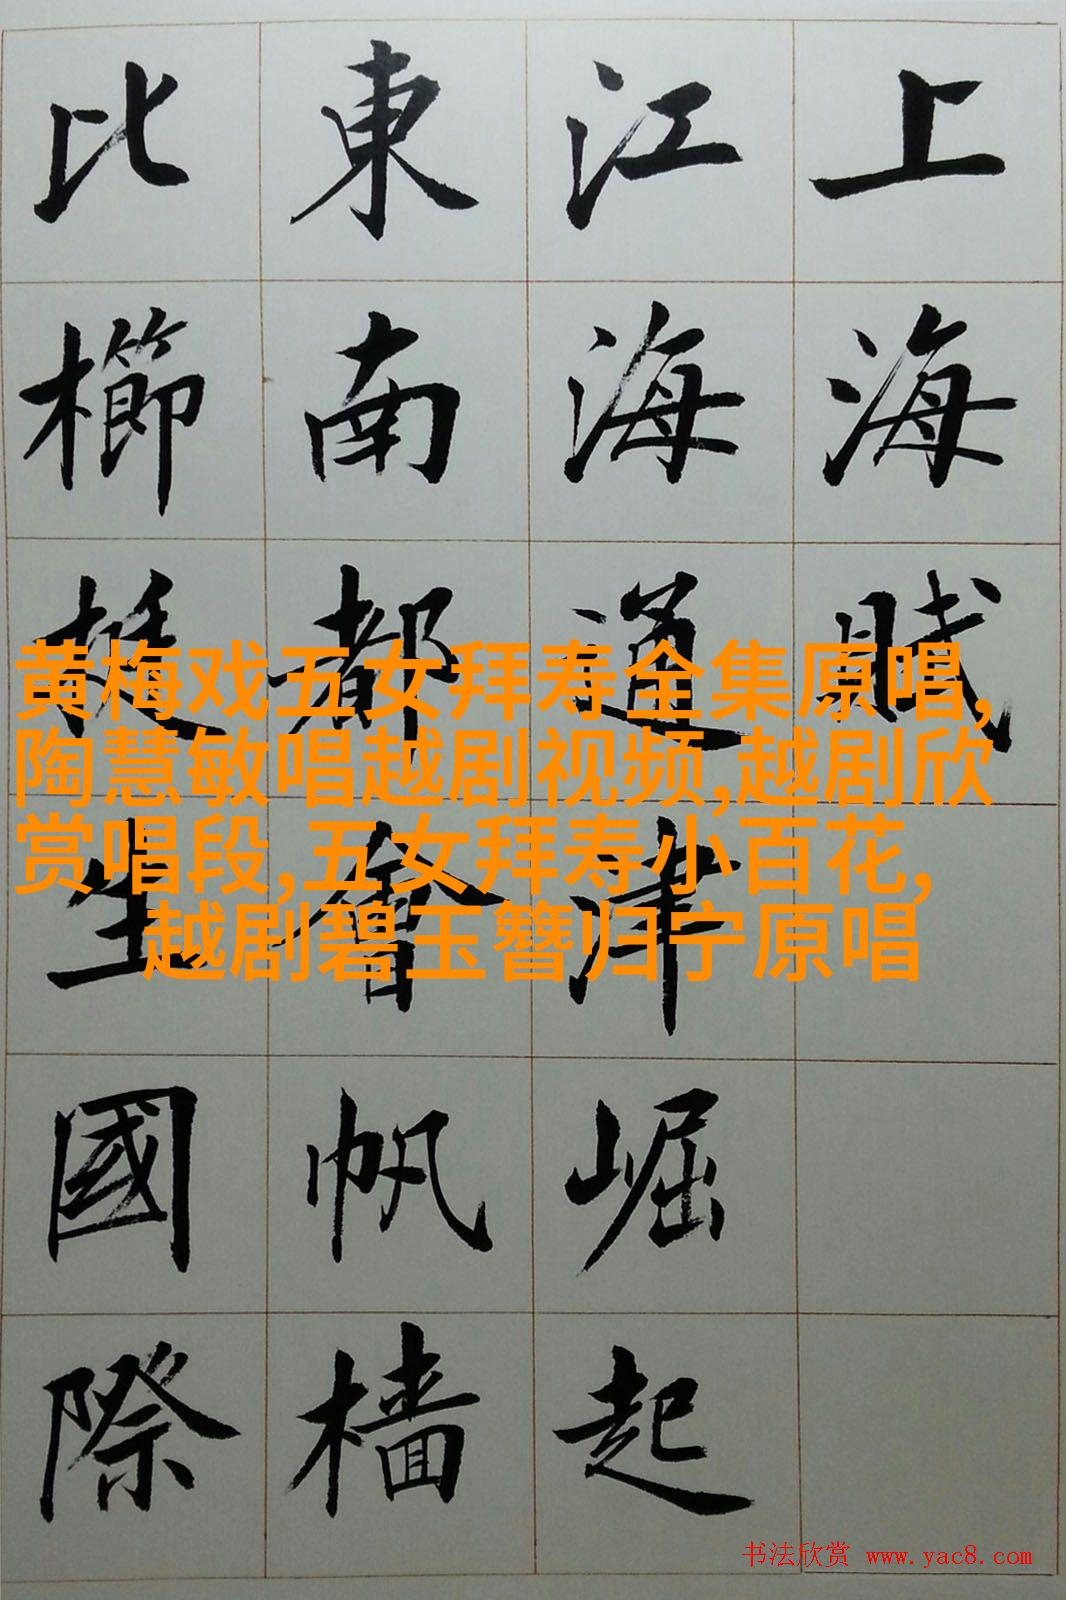 上海賦
江海通津崛起
東南都會帆檣
比櫛挺生國際
黄梅戏五女拜寿全集原唱,
陶慧敏唱越剧视频,越剧欣
赏唱段,五女拜寿小百花,
越剧碧玉簪归宁原唱
书法欣赏 www.yac8.com